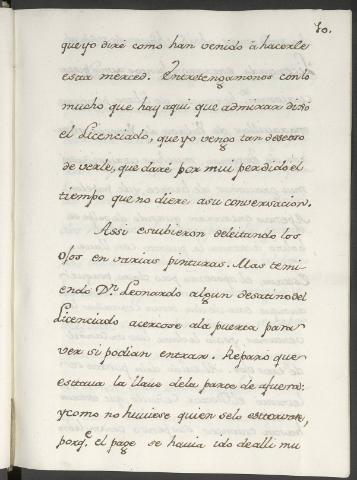 80.
que yo diré como han venido à hacerle
estar merced. Entretengamonos con lo
mucho que hay aqui que admirar dixo
el Licenciado, que yo vengo tan deseoso
de verle, que daré por mui perdido el
tiempo que no diere a su conversacion.
Assi estubieron deleitando los
ojos en varias pinturas. Mas temi
endo Dn. Leonardo algun desatino del
Licenciado acercose a la puerta para
ver si podian entrar. Reparó que
estava la llave de la parte de afuera:
y como no huviese quien se lo estorvase,
porqe. el page se havia ido de alli mu